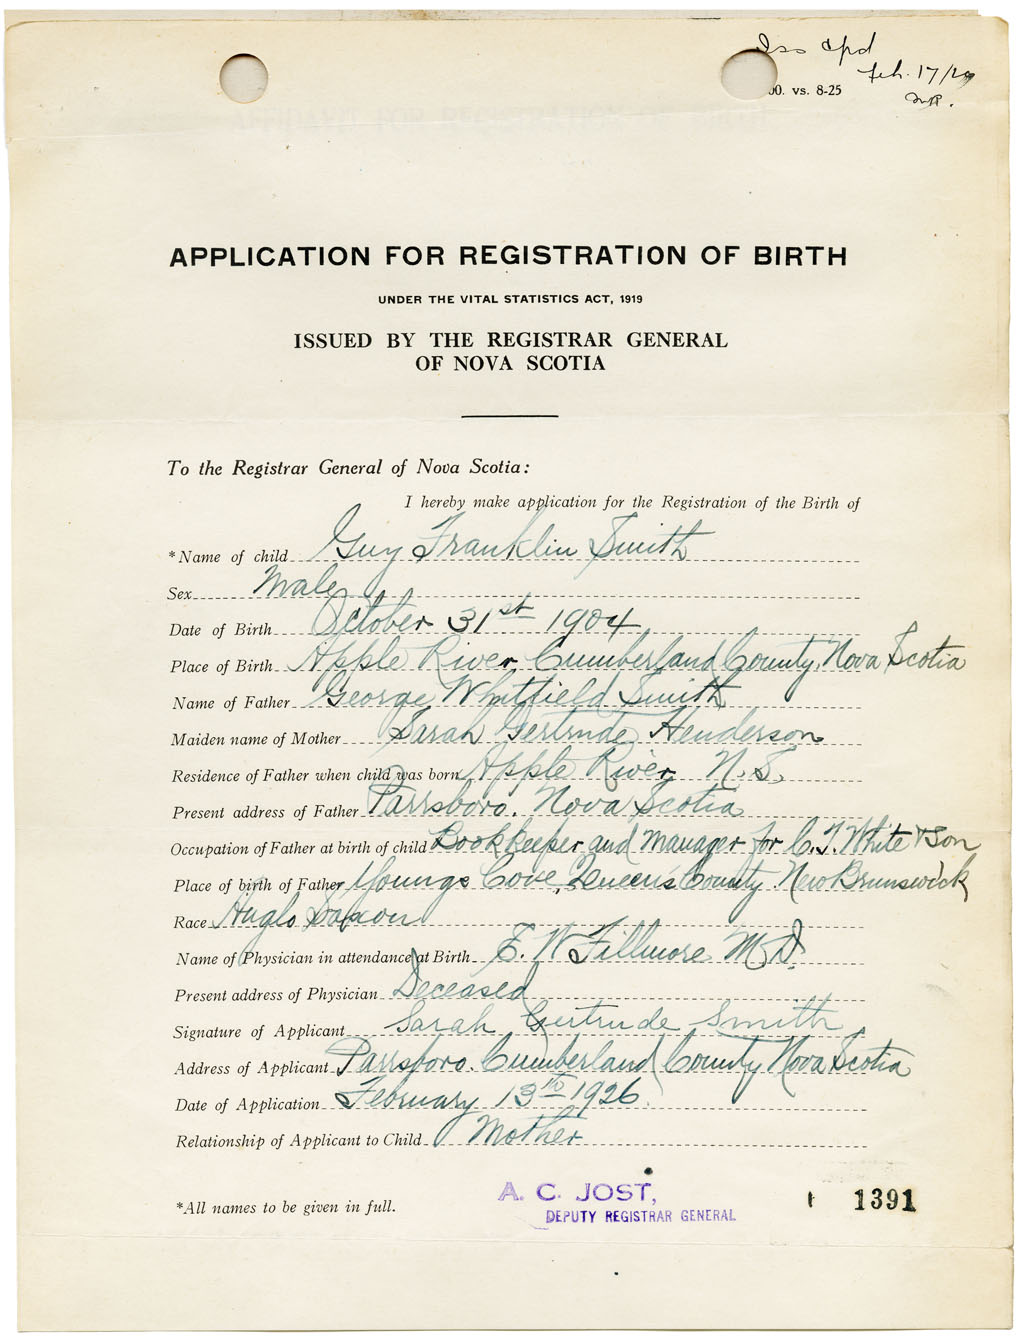 Iss cpd
Feb. 17/26
00. vs. 8-25
APPLICATION FOR REGISTRATION OF BIRTH
UNDER THE VITAL STATISTICS ACT, 1919
ISSUED BY THE REGISTRAR GENERAL
OF NOVA SCOTIA
To the Registrar General of Nova Scotia:
I hereby make application for the Registration of the Birth of
*Name of child Guy Franklin Smith
Sex Male
Date of Birth October 31st 1904
Place of Birth Apple River, Cumberland County, Nova Scotia
Name of Father George Whitfield Smith
Maiden name of Mother Sarah Gertrude Henderson
Residence of Father when child was born Apple River N.S.
Present address of Father Parrsboro. Nova Scotia
Occupation of Father at birth of child Bookkeeper and Manager for C.T. White & Son
Place of birth of Father Youngs Cove, Queens County. New Brunswick
Race Anglo Saxon
Name of Physician in attendance at Birth E. W Fillmore M.D.
Present address of Physician Deceased
Signature of Applicant Sarah Gertrude Smith
Address of Applicant Parrsboro. Cumberland County Nova Scotia
Date of Application February 13th 1926.
Relationship of Applicant to Child Mother
*All names to be given in full.
A. C. JOST,
DEPUTY REGISTRAR GENERAL
1391